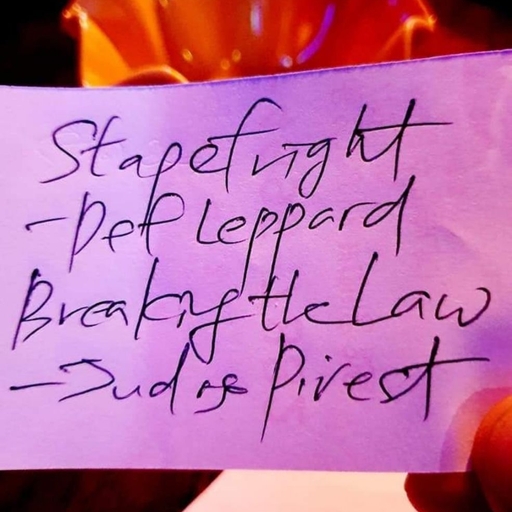 Stagefright
-Def Leppard
Breaking the Law
-Judge Pirest